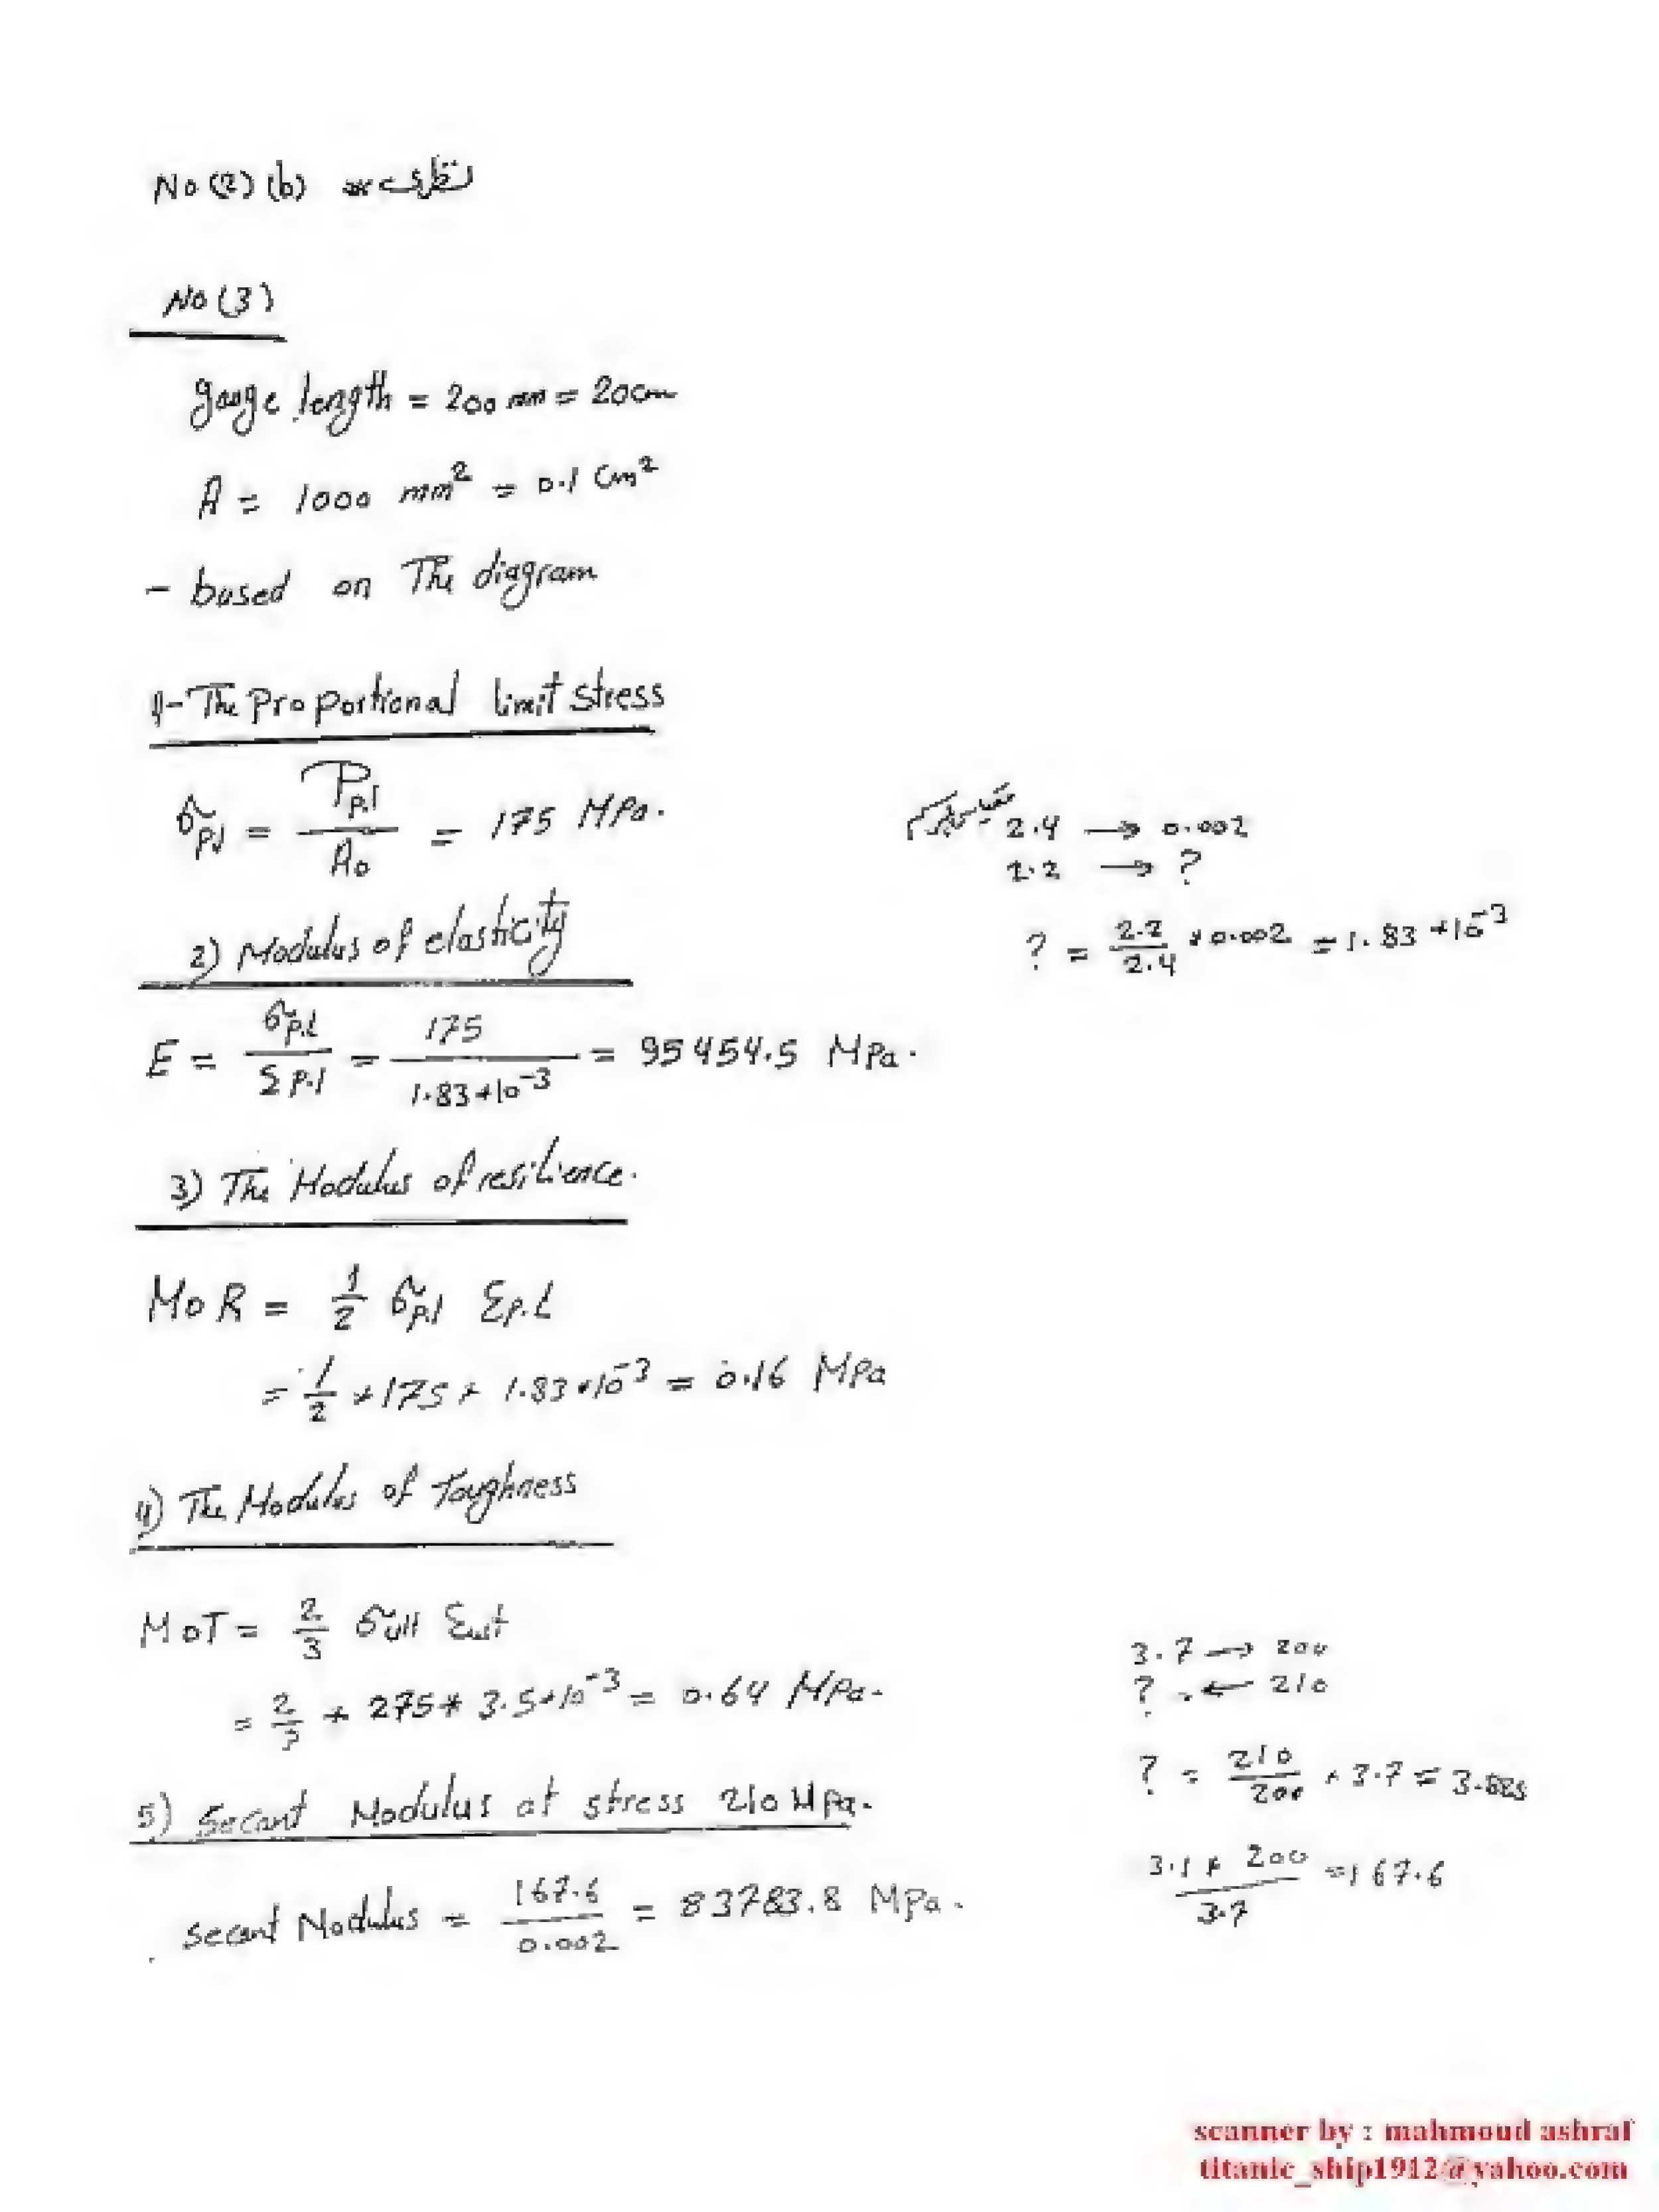 No (2) (b) نظرى
No (3)
gauge length = 200 mm = 20cm
A = 1000 mm² = 0.1 cm²
- based on The diagram
1- The proportional limit stress
σp.l = Pp.l / A₀ = 175 MPa.
2.4 → 0.002
2.2 → ?
? = 2.2/2.4 * 0.002 = 1.83 *10⁻³
2) Modulus of elasticity
E = σp.l / Σp.l = 175 / 1.83*10⁻³ = 95454.5 MPa.
3) The Modulus of resilience.
MoR = 1/2 σp.l Σp.l
= 1/2 * 175 * 1.83*10⁻³ = 0.16 MPa
4) The Modulus of Toughness
MoT = 2/3 σult Σult
= 2/3 * 275 * 3.5*10⁻³ = 0.64 MPa.
3.7 → 200
? ← 210
? = 210/200 * 3.7 = 3.885
5) Secant Modulus at stress 210 Mpa.
3.1 * 200 / 3.7 = 167.6
secant Modulus = 167.6 / 0.002 = 83783.8 MPa.
scanner by : mahmoud ashraf
titanic_ship1912@yahoo.com